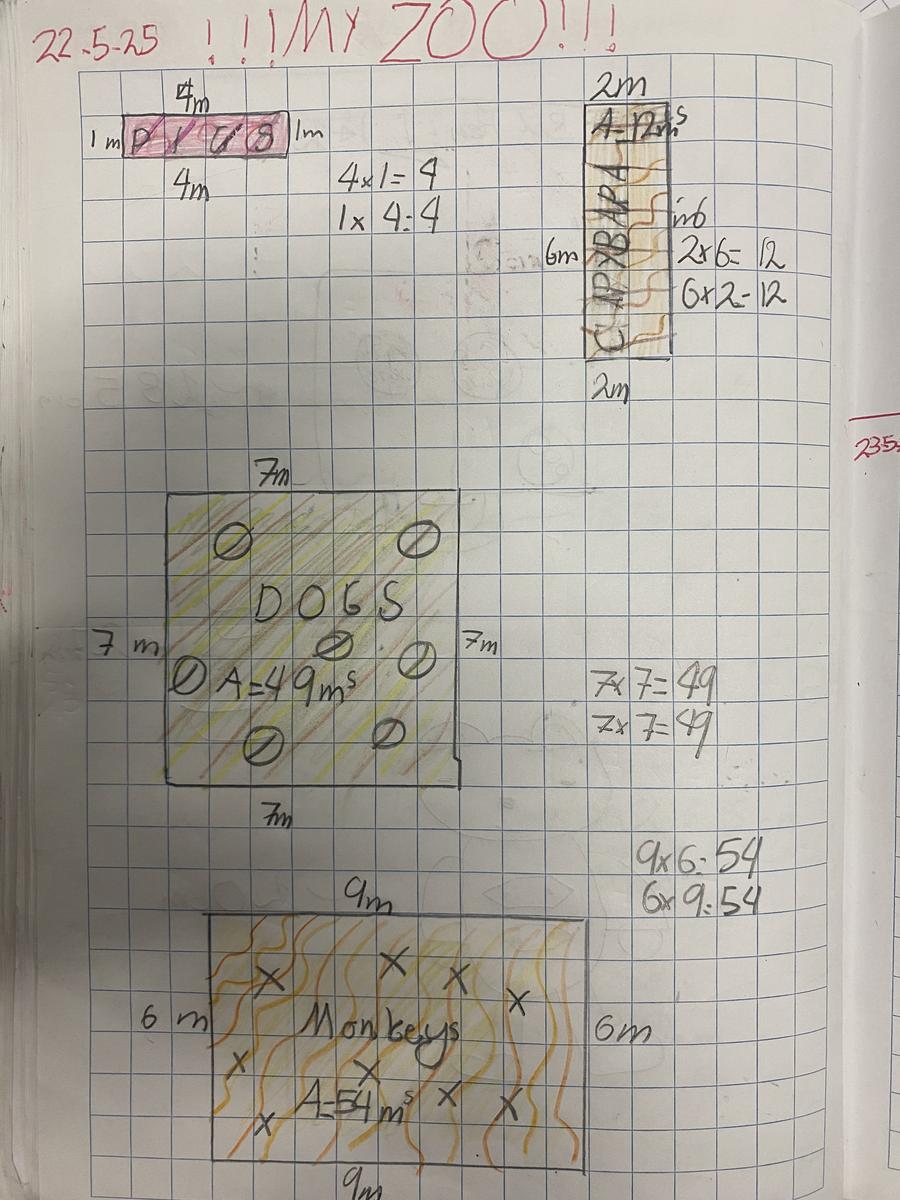 22-5-25 !!!MY ZOO!!!
4m
1m P I G S 1m
4m
4x1=4
1x4=4
2m
A=12mˢ
CAPYBAPA
6m
m6
2x6=12
6x2=12
2m
7m
DOGS
7 m
7m
A=49mˢ
7x7=49
7x7=49
7m
9x6=54
6x9=54
9m
Monkeys
6 m
6m
A=54mˢ
9m